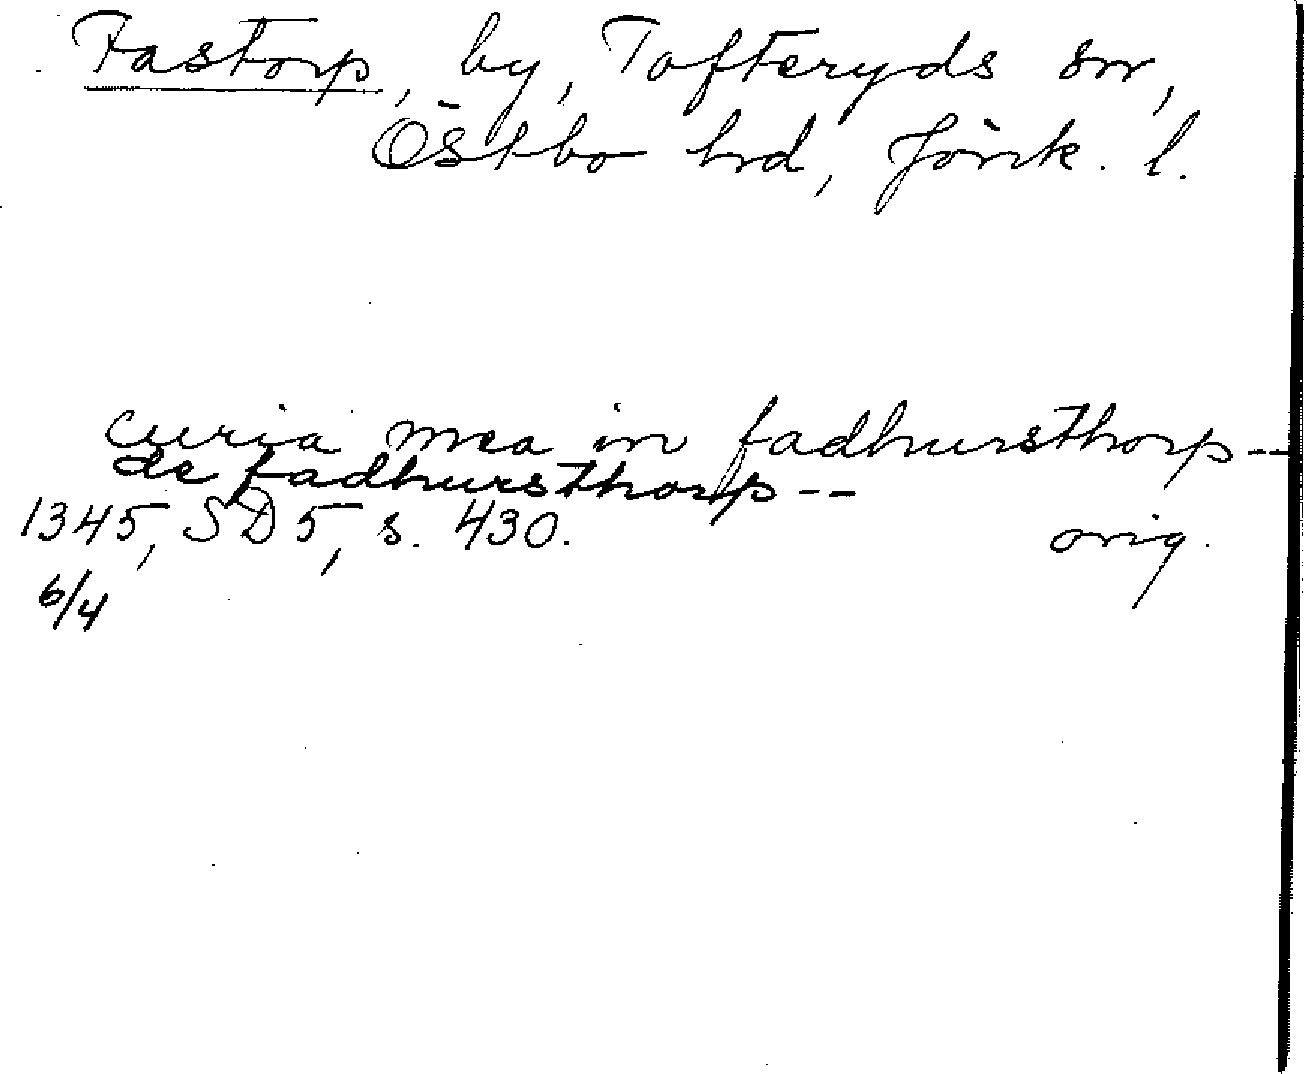 Fastorp, by, Tofteryds sn,
Östbo hrd, Jönk. l.
curia mea in fadhursthorp--
de fadhursthorp--
1345, SD 5, s. 430. orig.
6/4